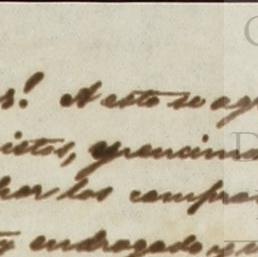 s! A esto se ag
istos, y encima
har los compra
endrogado y